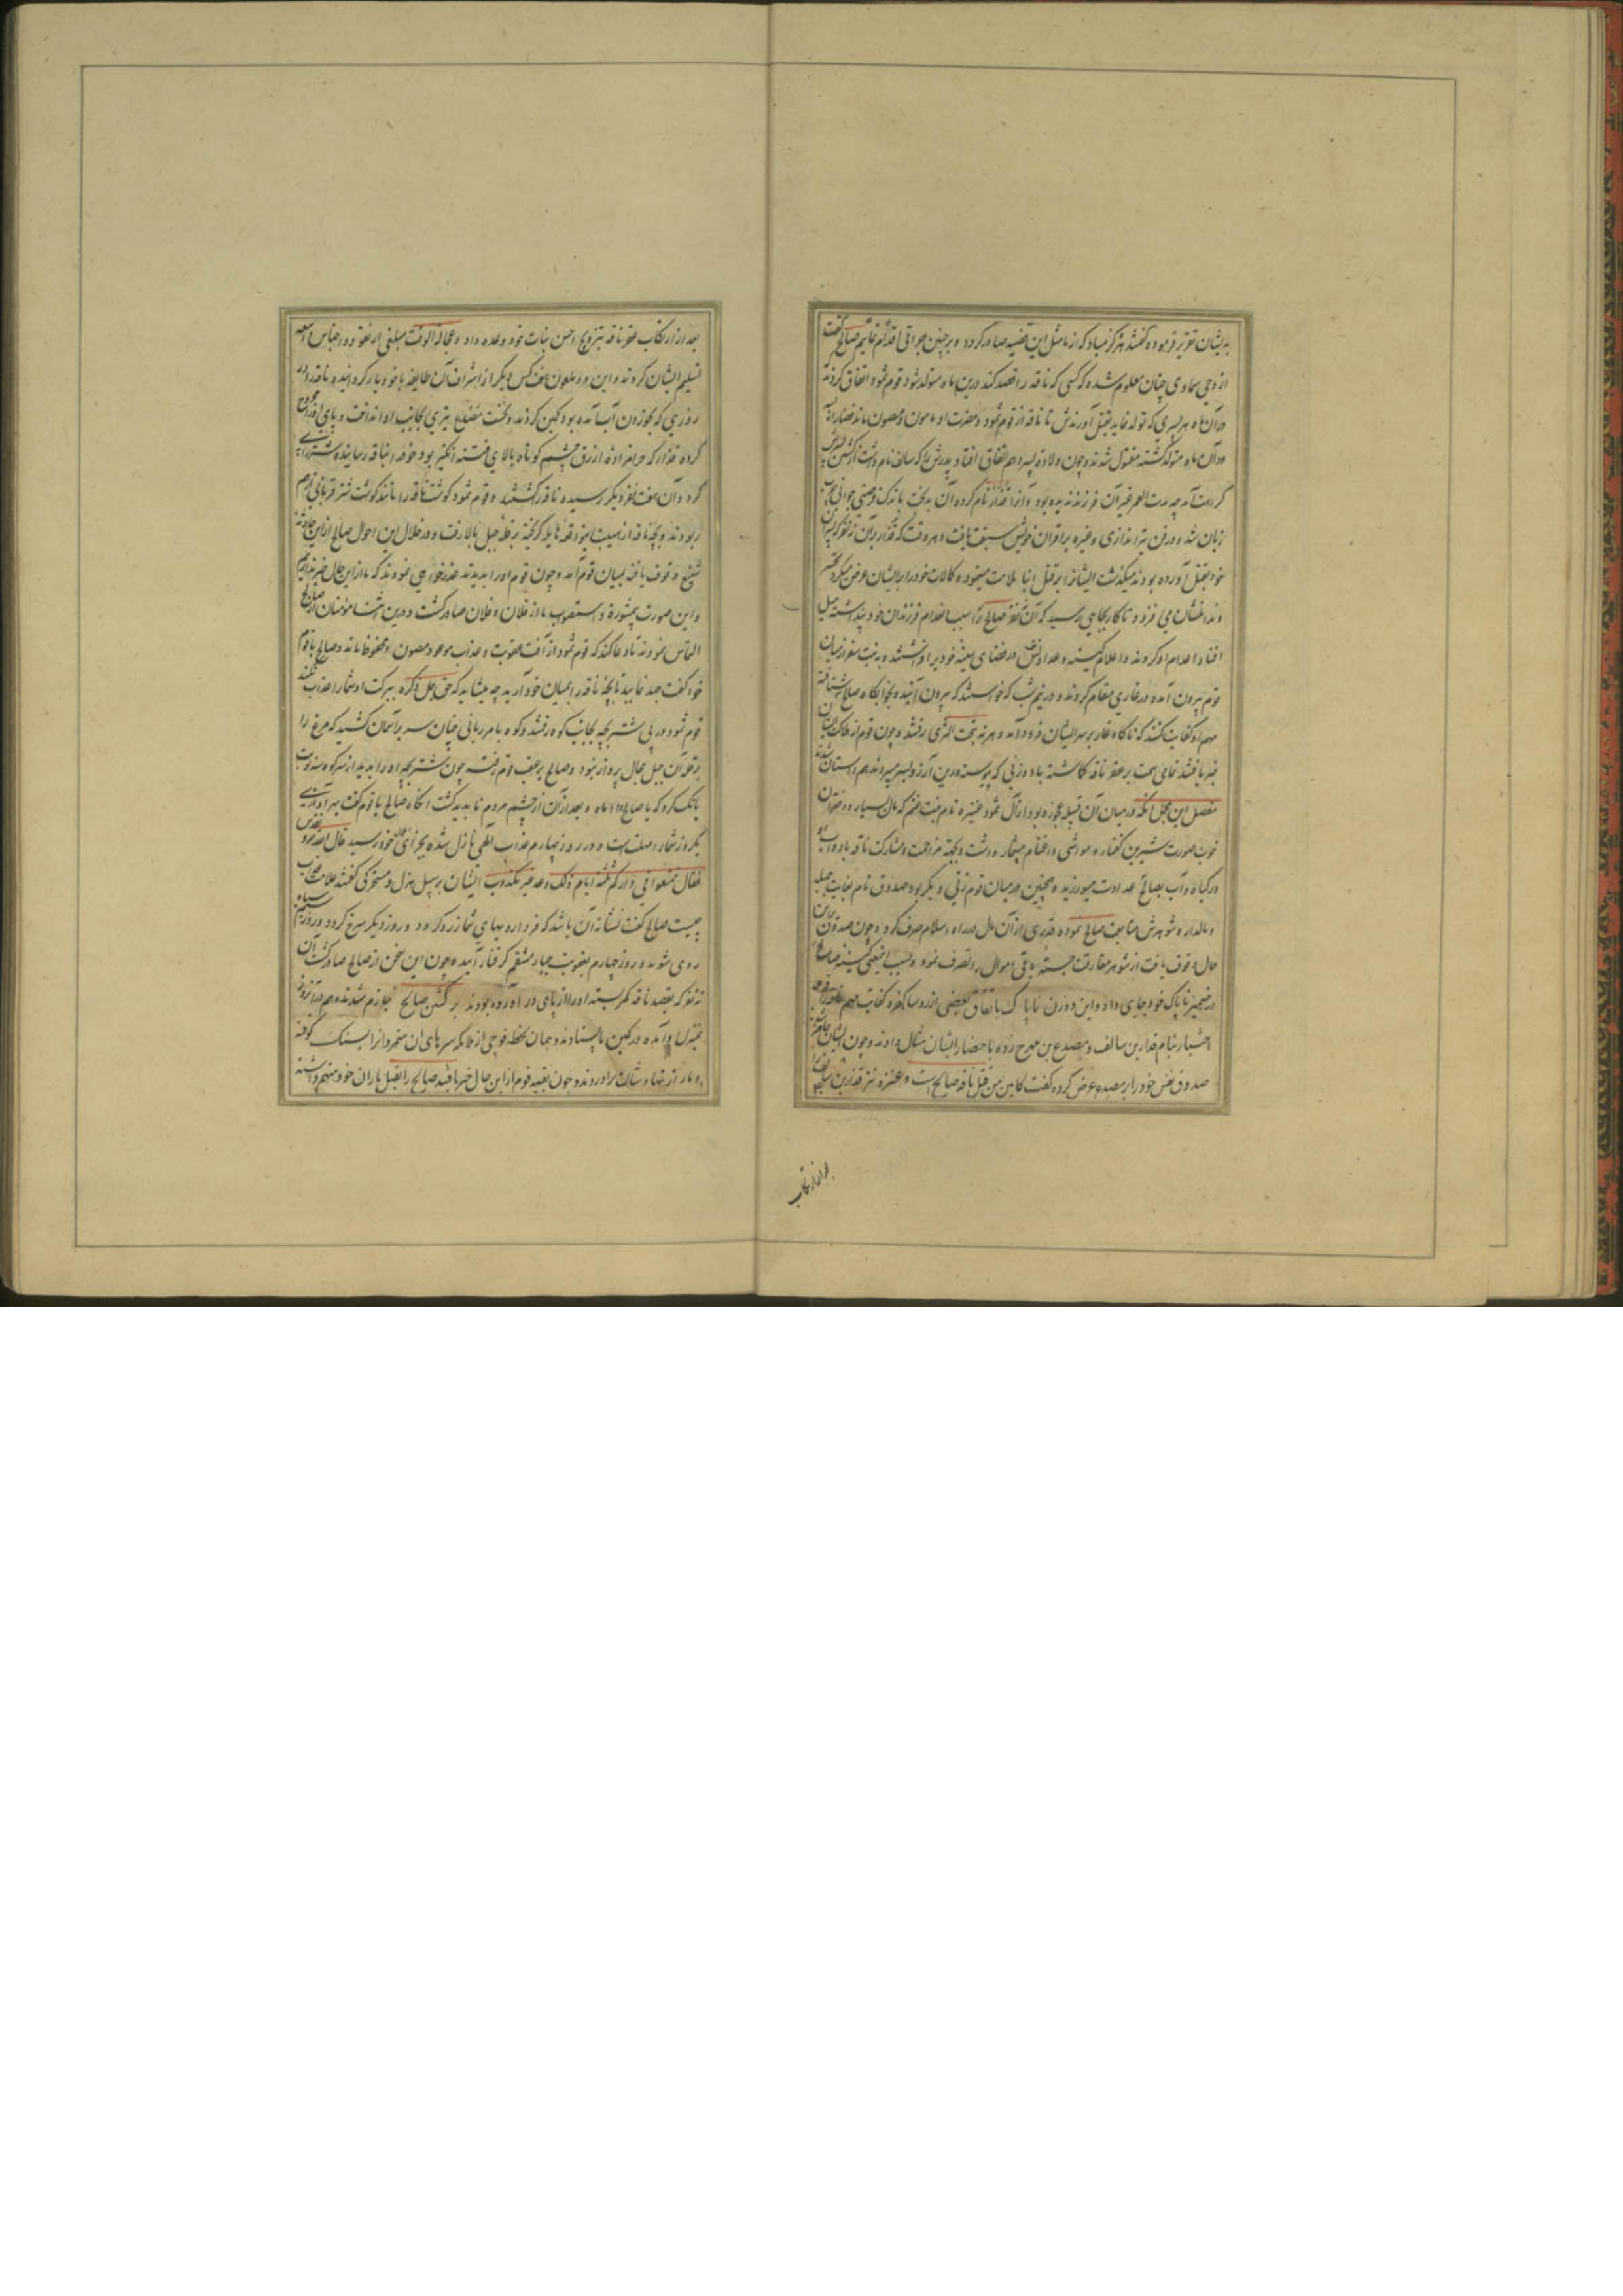 بدیشان تقریر فرموده گفتند هرگز مباد که از ما مثل این قضیه صادر گردد و بر چنین جراتی اقدام نماییم صالح گفت
از وحی سماوی چنان معلوم شده که کسی که ناقه را قصد کند درین ماه متولد شود قوم ثمود اتفاق کردند
در آن ماه هر پسری که تولد نماید بقتل آورندش تا ناقه از قوم ثمود و مضرت او مامون و مصون ماند
در آن ماه متولد گشته مقتول شدند و چون ولادت پسر دهم اتفاق افتاد پدرش را که سالف نام داشت از کشتن پسرش
کراهت آمد چه مدت العمر غیر آن فرزند ندیده بود و او را قدار نام کرده آن بدبخت باندک فرصتی جوانی
زبان شد و در فن تیراندازی و غیره بر اقران خویش سبقت یافت و هر وقت که قدار بر آن نه نفر که پسران
خود بقتل آورده بودند میگذشت ایشانرا بر قتل ابنا ملامت مینمود و کمالات خود را بر ایشان عرض میکرد
و ندامتشان می افزود تا کار بجایی رسید که آن نه نفر صالح را سبب اعدام فرزندان خود پنداشته میل
افناء و اعدام او کردند و اعلام کینه و عداوتش در فضای سینه خود برافراشتند و به نیت سفر از میان
قوم بیرون آمده در غاری مقام کردند و در نیم شب که خواستند که بیرون آیند و بخوابگاه صالح شتافته
مهم او کفایت کنند که ناگاه غار بر سر ایشان فرود آمد و هر نه تحت الثری رفتند و چون قوم از هلاک ایشان
خبر یافتند تمامی همت بر عقر ناقه گماشته با دو زنی که پیوسته درین آرزو بسر میبردند همداستان شدند
مفصل این مجمل آنکه در میان آن قبیله عجوزه بود از آل ثمود عنیزه نام بنت غنم که مال بسیار و دختران
خوب صورت شیرین گفتار و مواشی و اغنام بیشمار داشت و بجهة مزاحمت و مشارکت ناقه با دواب او
در گیاه و آب بصالح عداوت میورزید و همچنین در میان قوم زنی دیگر بود صدوق نام بغایت جمیله
و مالدار و شوهرش متابعت صالح نموده قدری از آن مال در راه اسلام صرف کرد و چون صدوق بر این
حال وقوف یافت از شوهر مفارقت جسته باقی اموال را تصرف نمود و بسبب اینمعنی کینه صالح
در ضمیر ناپاک خود جای داد و این دو زن ناپاک باتفاق بعضی کفره کفایت مهم ناقه را
اختیار بنام قدار بن سالف و مصدع بن مهرج زده باحضار ایشان مثال دادند و چون ایشان حاضر
صدوق نفس خود را بر مصدع عرض کرده گفت کابین من قتل ناقه صالح است و عنیزه نیز قدار بن سالف را
بعد از ارتکاب
بعد از ارتکاب عقر ناقه بتزویج احسن بنات خود وعده داد و عجالة الوقت مبلغی از نقود و اجناس
تسلیم ایشان کردند و این دو ملعون هفت کس دیگر از اشراف آن طایفه با خود یار گردانیده ناقه را در
روزی که بخوردن آب آمده بود کمین کردند و نخست مصدع تیری بجانب او انداخت و پای او را مجروح
کرده قدار که حرامزاده ازرق چشم کوتاه بالای فتنه انگیز بود خود را بناقه رسانیده شتر را پی
کرد و آن هفت نفر دیگر رسیده ناقه را کشتند و قوم ثمود گوشت ناقه را مانند گوشت شتر قربانی از هم
ربودند و بچه ناقه از هیبت اینواقعه هایله گریخته بر قله جبل بالا رفت و در خلال این احوال صالح از این حادثه
شنیع وقوف یافته بمیان قوم آمد و چون قوم او را بدیدند عذرخواهی نمودند که ما از این حال خبر نداریم
و این صورت بیمشورة و استصواب ما از فلان و فلان صادر گشت و درین اثنا مؤمنان از صالح
التماس نمودند تا دعا کند که قوم ثمود از آفت عقوبت و عذاب موعود مصون و محفوظ مانند و صالح با قوم
خود گفت جهد نمایید تا بچه ناقه را بمیان خود آرید چه میشاید که حق جل ذکره ببرکت او شما را عذاب نکند
قوم ثمود در پی شتر بچه بجانب کوه رفتند و کوه بامر ربانی چنان سر بر آسمان کشید که مرغ را
بر قله آن جبل مجال پرواز نبود و صالح بر عقب قوم رفته چون شتر بچه او را بدید از سر کوه سه نوبت
بانگ کرد که یا صالح وا اماه و بعد از آن از چشم مردم ناپدید گشت آنگاه صالح با قوم گفت بهر آوازی
یکروز شما را مهلتست و در روز چهارم عذاب الهی نازل شده بجزای اعمال خود رسید قال الله تعالی
فقال تمتعوا فی دارکم ثلثة ایام ذلک وعد غیر مکذوب ایشان بر سبیل هزل و سخرگی گفتند علامت عذاب
چیست صالح گفت نشانه آن باشد که فردا رویهای شما زرد گردد و روز دیگر سرخ گردد و روز سیم سیاه
روی شوید و روز چهارم بعقوبت جبار منتقم گرفتار آیید و چون این سخن از صالح صادر گشت آن
نه نفر که بقصد ناقه کمر بسته او را از پای در آورده بودند بر کشتن صالح جازم شدند و هم در آن روز
بمنزل او آمده در کمین بایستادند و همان لحظه فوجی از ملائکه سرهای آن متمردانرا بسنگ کوفته
دمار از نهادشان برآوردند و چون بقیه قوم از این حال خبر یافتند صالح را بقتل یاران خود متهم داشته